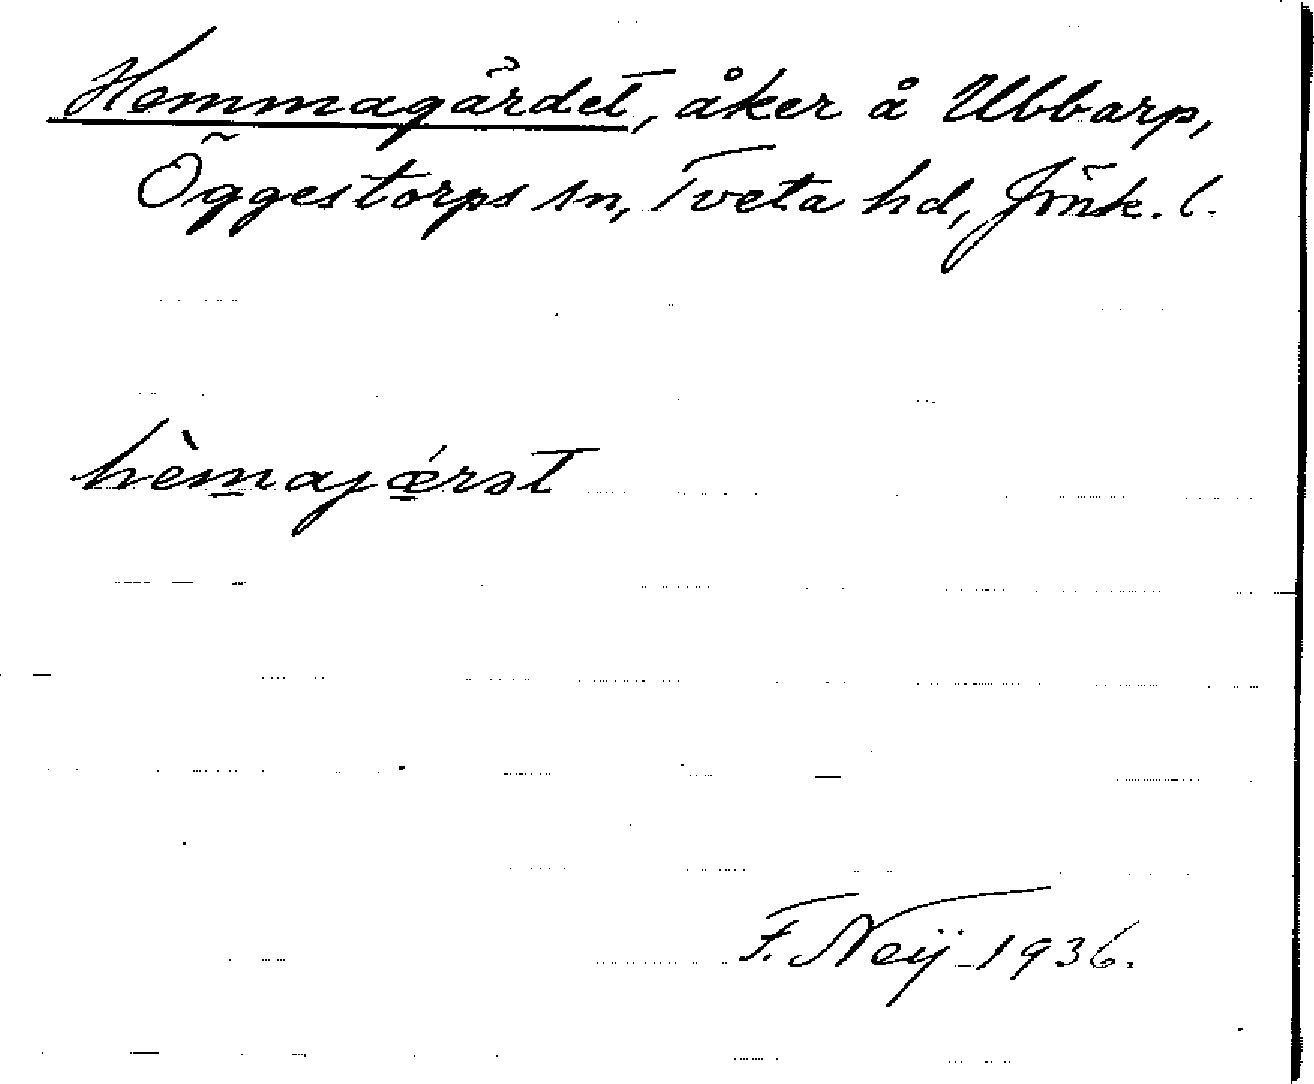 Hemmagärdet, åker å Ubbarp,
Öggestorps sn, Tveta hd, Jönk. l.
hèm̲ajǽ̲rət
F. Neij 1936.